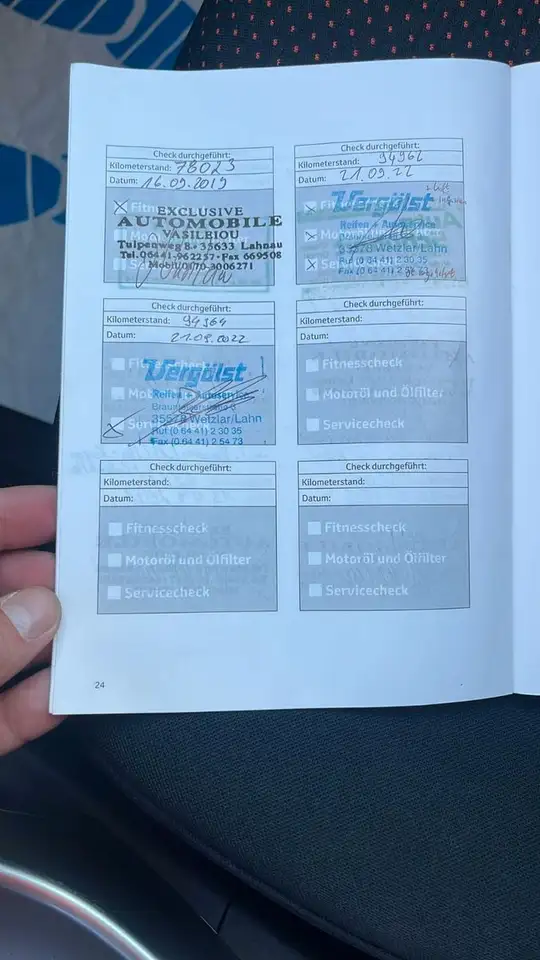 Check durchgeführt:
Kilometerstand: 78023
Datum: 16.09.2019
EXCLUSIVE
AUTOMOBILE
VASILEIOU
Tulpenweg 8 · 35633 Lahnau
Tel. 06441-962257 · Fax 669508
Mobil 0170-3006271
Check durchgeführt:
Kilometerstand: 94962
Datum: 21.09.22
Vergölst
Reifen + Autoservice
35578 Wetzlar/Lahn
Ruf (0 64 41) 2 30 35
Fax (0 64 41) 2
Check durchgeführt:
Kilometerstand: 94964
Datum: 21.09.2022
Vergölst
Reifen + Autoservice
35578 Wetzlar/Lahn
Ruf (0 64 41) 2 30 35
Fax (0 64 41) 2 54 73
Check durchgeführt:
Kilometerstand:
Datum:
Fitnesscheck
Motoröl und Ölfilter
Servicecheck
Check durchgeführt:
Kilometerstand:
Datum:
Fitnesscheck
Motoröl und Ölfilter
Servicecheck
Check durchgeführt:
Kilometerstand:
Datum:
Fitnesscheck
Motoröl und Ölfilter
Servicecheck
24